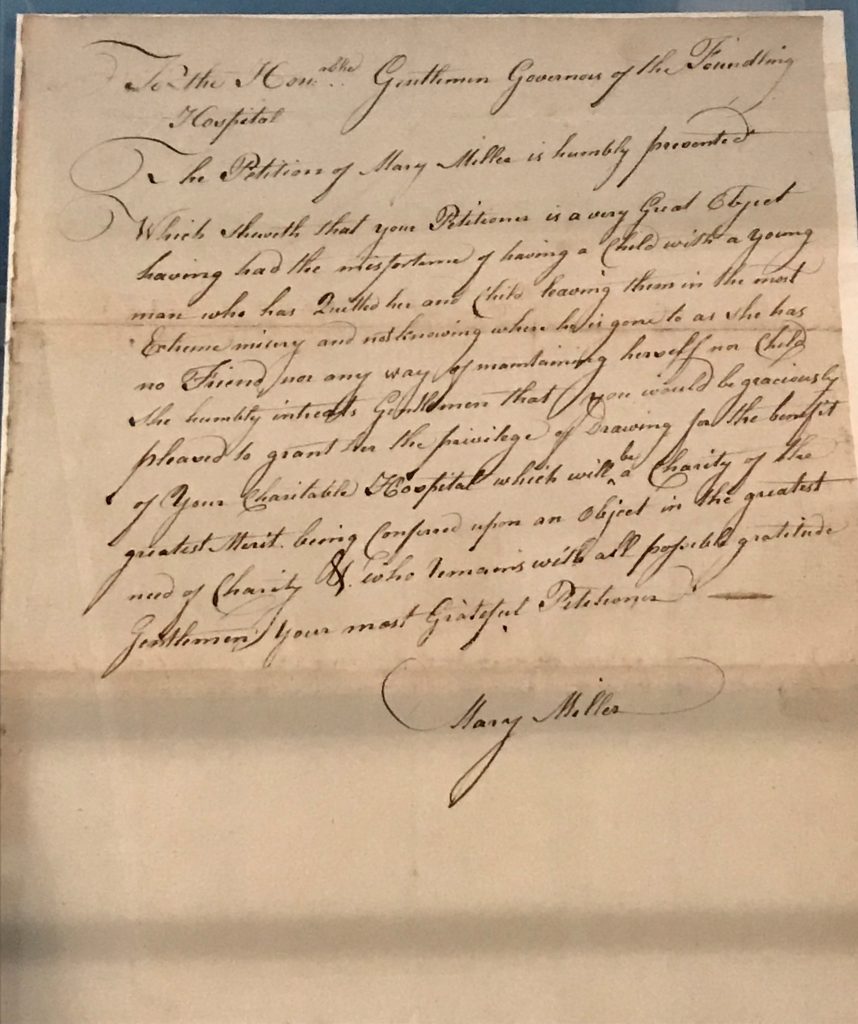 To the Hon.able Gentlemen Governors of the Foundling
Hospital
The Petition of Mary Miller is humbly presented
Which sheweth that your Petitioner is a very Great Object
having had the misfortune of having a Child with a young
man who has Quitted her and Child leaving them in the most
Extreme misery and not knowing where he is gone to as she has
no Friend nor any way of maintaining herself nor Child
she humbly intreats Gentlemen that you would be graciously
pleased to grant her the privilege of Drawing for the benefit
of Your Charitable Hospital which will be a Charity of the
greatest Merit. being Conferred upon an Object in the greatest
need of Charity &. who remains with all possible gratitude
Gentlemen Your most Grateful Petitioner
Mary Miller